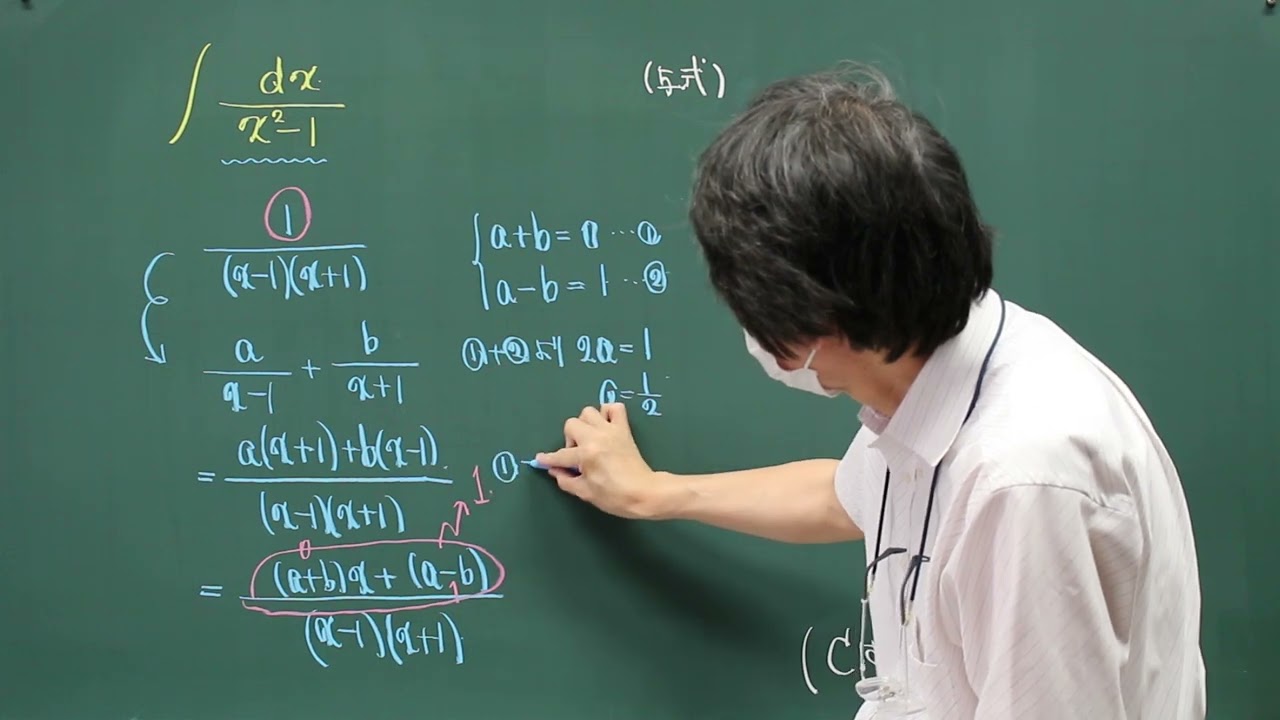 ∫ dx / (x²−1)
(与式)
1
(x−1)(x+1)
a/(x−1) + b/(x+1)
= a(x+1)+b(x−1)
(x−1)(x+1)
1.
0
= (a+b)x+(a−b)
1
(x−1)(x+1)
a+b=0 … ①
a−b=1 … ②
①+②より 2a=1
a=1/2
①−
(C